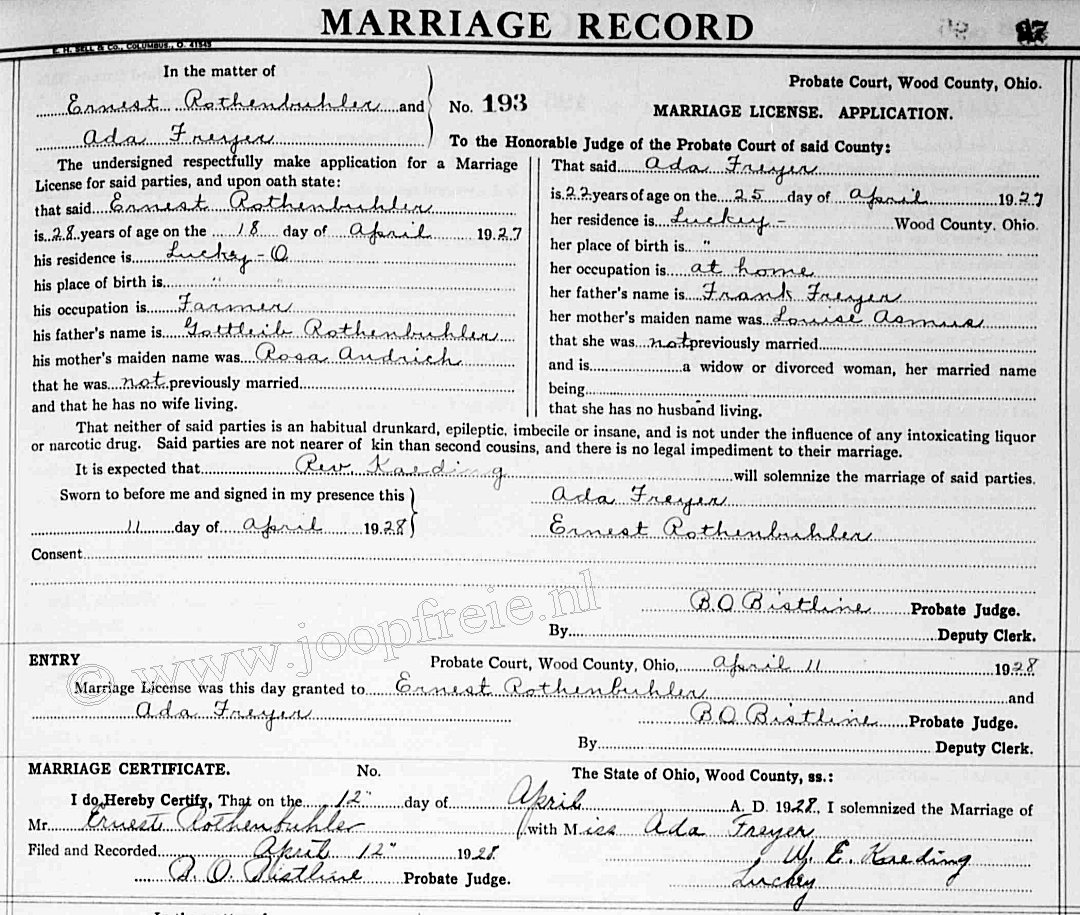 MARRIAGE RECORD
E. H. BELL & CO., COLUMBUS, O. 41545
In the matter of
Ernest Rothenbuhler and
Ada Freyer
No. 193
Probate Court, Wood County, Ohio.
MARRIAGE LICENSE. APPLICATION.
To the Honorable Judge of the Probate Court of said County:
The undersigned respectfully make application for a Marriage
License for said parties, and upon oath state:
that said Ernest Rothenbuhler
is 28 years of age on the 18 day of April 1927
his residence is Luckey - O
his place of birth is " "
his occupation is Farmer
his father's name is Gottleib Rothenbuhler
his mother's maiden name was Rosa Andrich
that he was not previously married
and that he has no wife living.
That said Ada Freyer
is 22 years of age on the 25 day of April 1927
her residence is Luckey - Wood County. Ohio.
her place of birth is "
her occupation is at home
her father's name is Frank Freyer
her mother's maiden name was Louise Asmus
that she was not previously married
and is a widow or divorced woman, her married name
being
that she has no husband living.
That neither of said parties is an habitual drunkard, epileptic, imbecile or insane, and is not under the influence of any intoxicating liquor
or narcotic drug. Said parties are not nearer of kin than second cousins, and there is no legal impediment to their marriage.
It is expected that Rev Kaeding will solemnize the marriage of said parties.
Sworn to before me and signed in my presence this
11 day of April 1928
Ada Freyer
Ernest Rothenbuhler
Consent
B O Bistline Probate Judge.
By Deputy Clerk.
© www.joopfreie.nl
ENTRY
Probate Court, Wood County, Ohio, April 11 1928
Marriage License was this day granted to Ernest Rothenbuhler and
Ada Freyer
B O Bistline Probate Judge.
By Deputy Clerk.
MARRIAGE CERTIFICATE. No. The State of Ohio, Wood County, ss.:
I do Hereby Certify, That on the 12" day of April A. D. 1928, I solemnized the Marriage of
Mr Ernest Rothenbuhler with Miss Ada Freyer
Filed and Recorded April 12" 1928
W. E. Kaeding
B. O. Bistline Probate Judge.
Luckey